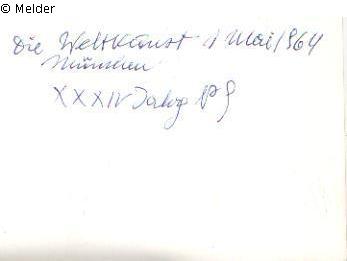 © Melder
Die Weltkunst 1 Mai 1964
München
XXXIV Jahrg Nº 9